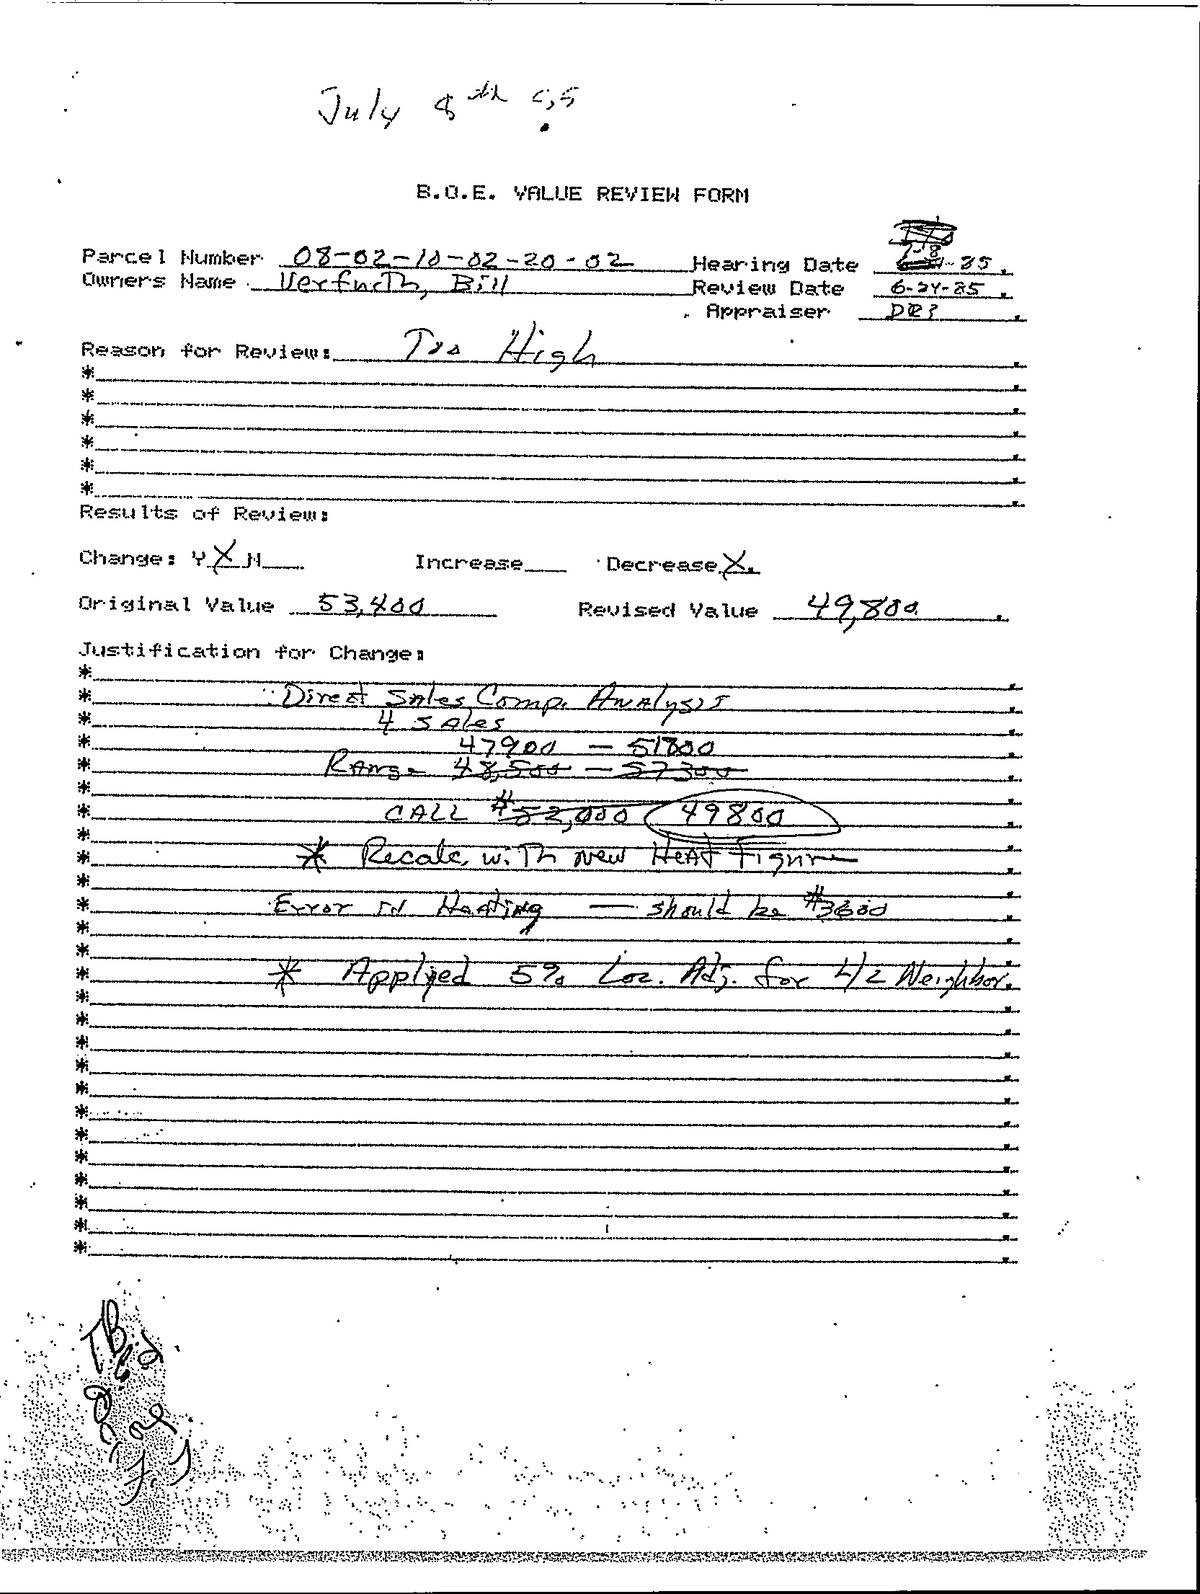 July 8th
B.O.E. VALUE REVIEW FORM
Parcel Number 08-02-10-02-20-02 Hearing Date -85.
Owners Name Verfurth, Bill Review Date 6-24-85.
Appraiser
Reason for Review: Too High
*
*
*
*
*
*
Results of Review:
Change: Y X N Increase Decrease X.
Original Value 53,400 Revised Value 49,800.
Justification for Change:
*
* Direct Sales Comp. Analysis
* 4 Sales
* 47900 - 51800
* Range 48,500 - 57300
*
* CALL $52,000 49800
*
* * Recalc. with new Heat Figure
*
* Error in Heating - should be $3600
*
*
* * Applied 5% Loc. Adj. for 4/2 Neighbor.
*
*
*
*
*
*
*
*
*
*
*
*